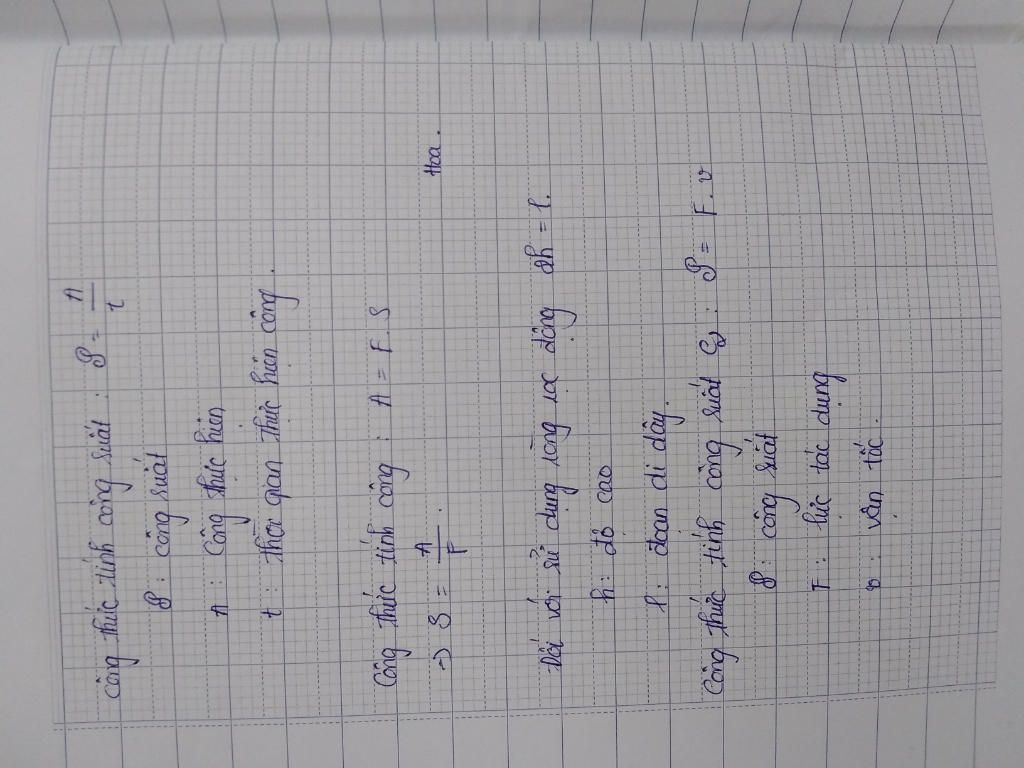 Công thức tính công suất : P = A/t
P : công suất
A : Công thực hiện
t : thời gian thực hiện công.
Công thức tính công : A = F. S
-> S = A/F.
Hoa.
Đối với sử dụng ròng rọc động 2h = l.
h : độ cao
l : đoạn di dây.
Công thức tính công suất : P = F. v
P : công suất
F : lực tác dụng
v : vận tốc.